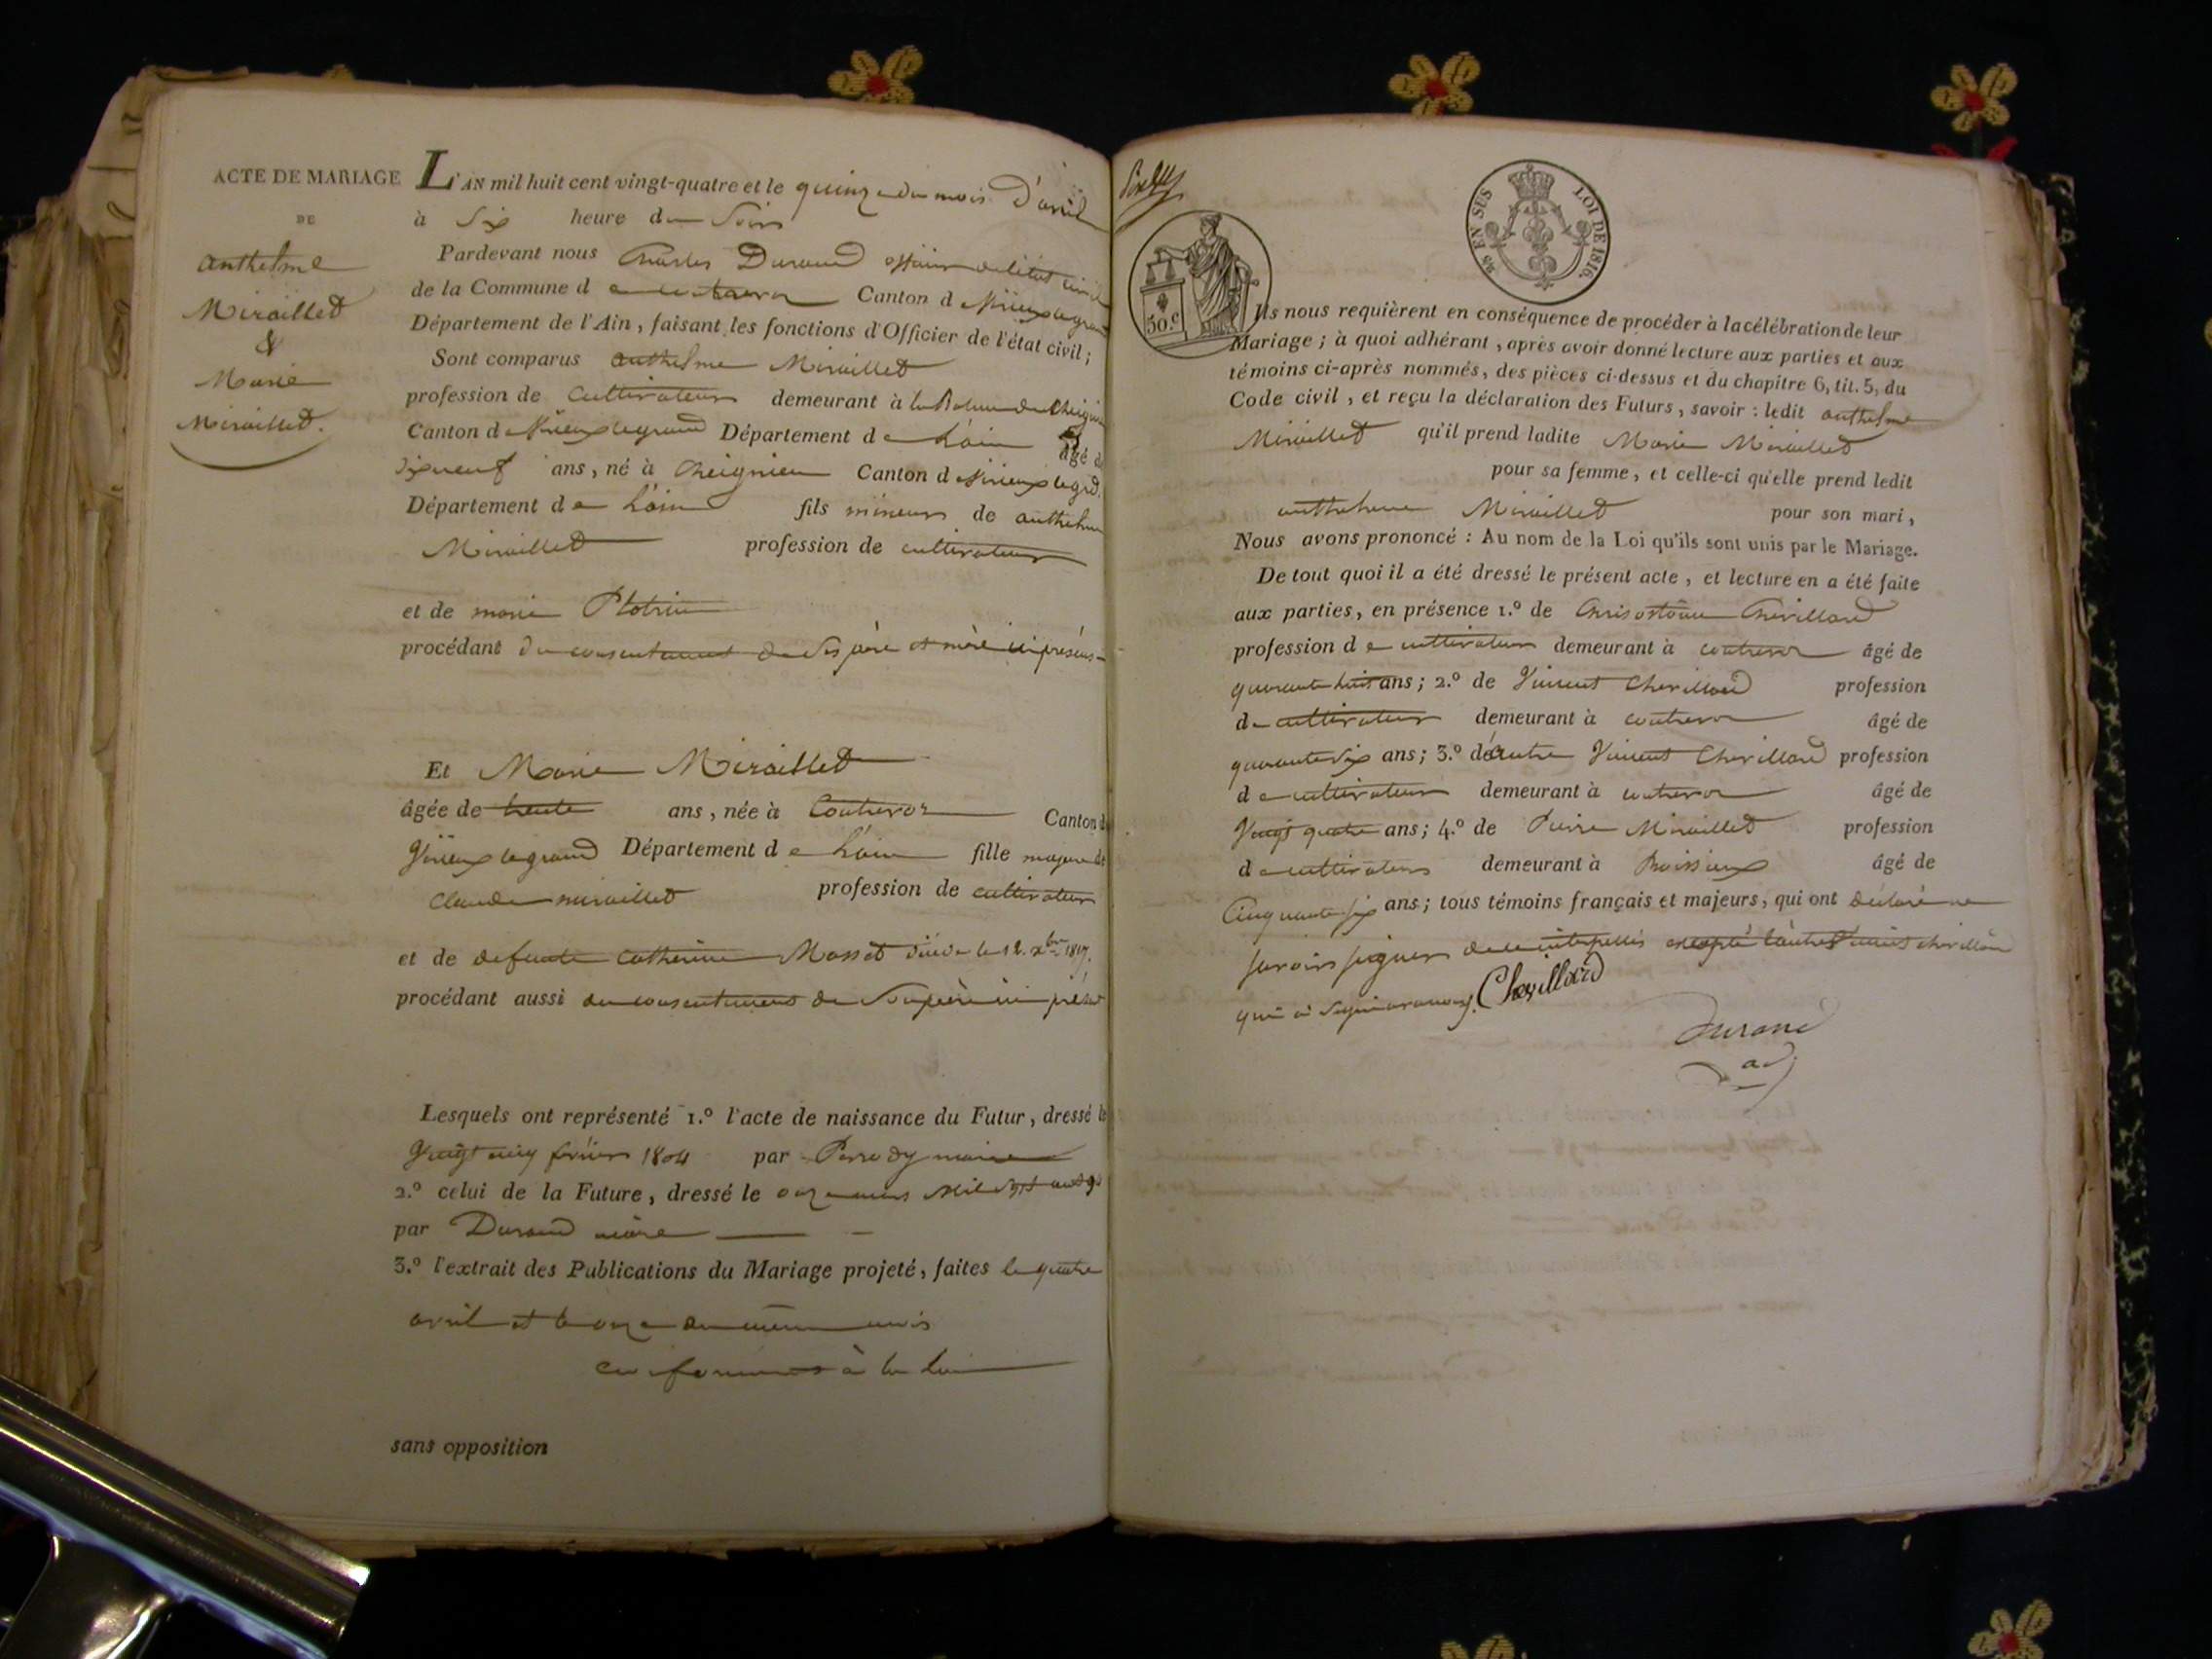 ACTE DE MARIAGE
DE
anthelme
Miraillet
&
Marie
Miraillet.
L'AN mil huit cent vingt-quatre et le quinze du mois D'avril
à Six heure du Soir
Pardevant nous Charles Durand officier de l'état civil
de la Commune de contrevoz Canton de Virieux le grand
Département de l'Ain, faisant les fonctions d'Officier de l'état civil;
Sont comparus anthelme Miraillet
profession de cultivateur demeurant à
Canton de Virieux le grand Département de L'ain âgé de
dixneuf ans, né à Cheignieu Canton de Virieux le grd.
Département de L'ain fils mineur de anthelme
Miraillet profession de cultivateur
et de marie
procédant du consentement de Ses père et mère ici présens
Et Marie Miraillet
âgée de trente ans, née à Contrevoz Canton de
Virieux le grand Département de L'ain fille majeure de
Claude miraillet profession de cultivateur
et de defunte Catherine Masset décédée le 12. xbre 1817.
procédant aussi du consentement de Son père ici présent
Lesquels ont représenté 1.º l'acte de naissance du Futur, dressé le
Vingt cinq février 1804 par maire
2.º celui de la Future, dressé le onze mars Mil Sept cent
par Durand maire
3.º l'extrait des Publications du Mariage projeté, faites le quatre
avril et le onze du même mois
conformément à la Loi
sans opposition
50.C
EN SUS
LOI DE 1816.
Ils nous requièrent en conséquence de procéder à la célébration de leur
Mariage; à quoi adhérant, après avoir donné lecture aux parties et aux
témoins ci-après nommés, des pièces ci-dessus et du chapitre 6, tit. 5, du
Code civil, et reçu la déclaration des Futurs, savoir: ledit anthelme
Miraillet qu'il prend ladite Marie Miraillet
pour sa femme, et celle-ci qu'elle prend ledit
anthelme Miraillet pour son mari,
Nous avons prononcé: Au nom de la Loi qu'ils sont unis par le Mariage.
De tout quoi il a été dressé le présent acte, et lecture en a été faite
aux parties, en présence 1.º de Chevillard
profession de cultivateur demeurant à contrevoz âgé de
quarante huit ans; 2.º de Vincent Chevillard profession
de cultivateur demeurant à contrevoz âgé de
quarante Six ans; 3.º d'autre Vincent Chevillard profession
de cultivateur demeurant à contrevoz âgé de
Vingt quatre ans; 4.º de Pierre Miraillet profession
de cultivateur demeurant à Boissieux âgé de
Cinquante six ans; tous témoins français et majeurs, qui ont déclaré ne
savoir signer de ce interpellés excepté l'autre Vincent chevillard
qui à Signé avec nous. Chevillard
Durand
adj